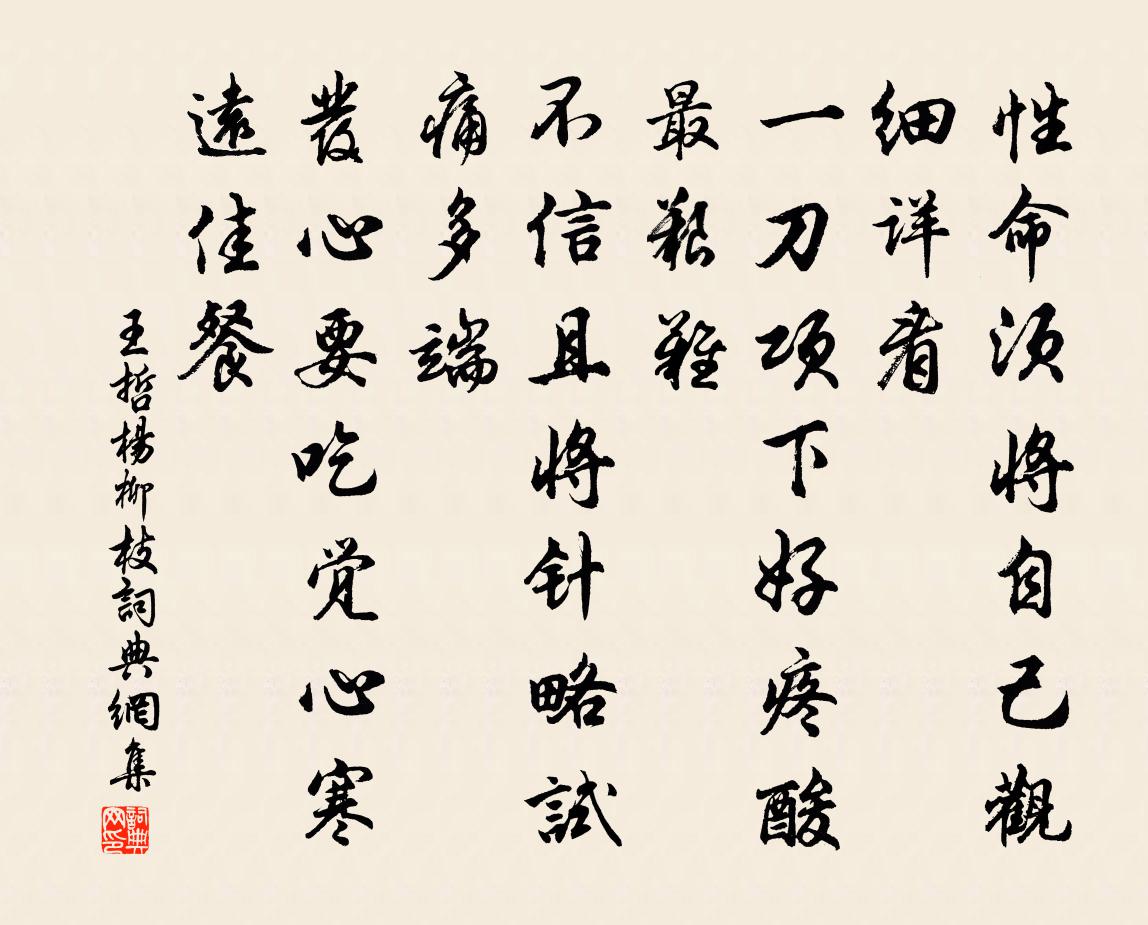 性命须将自己觀
细详看
一刀项下好疼酸
最艱難
不信且將针略試
痛多端
發心要吃觉心寒
遠佳餐
王哲楊柳枝詞典網集
詞典网印